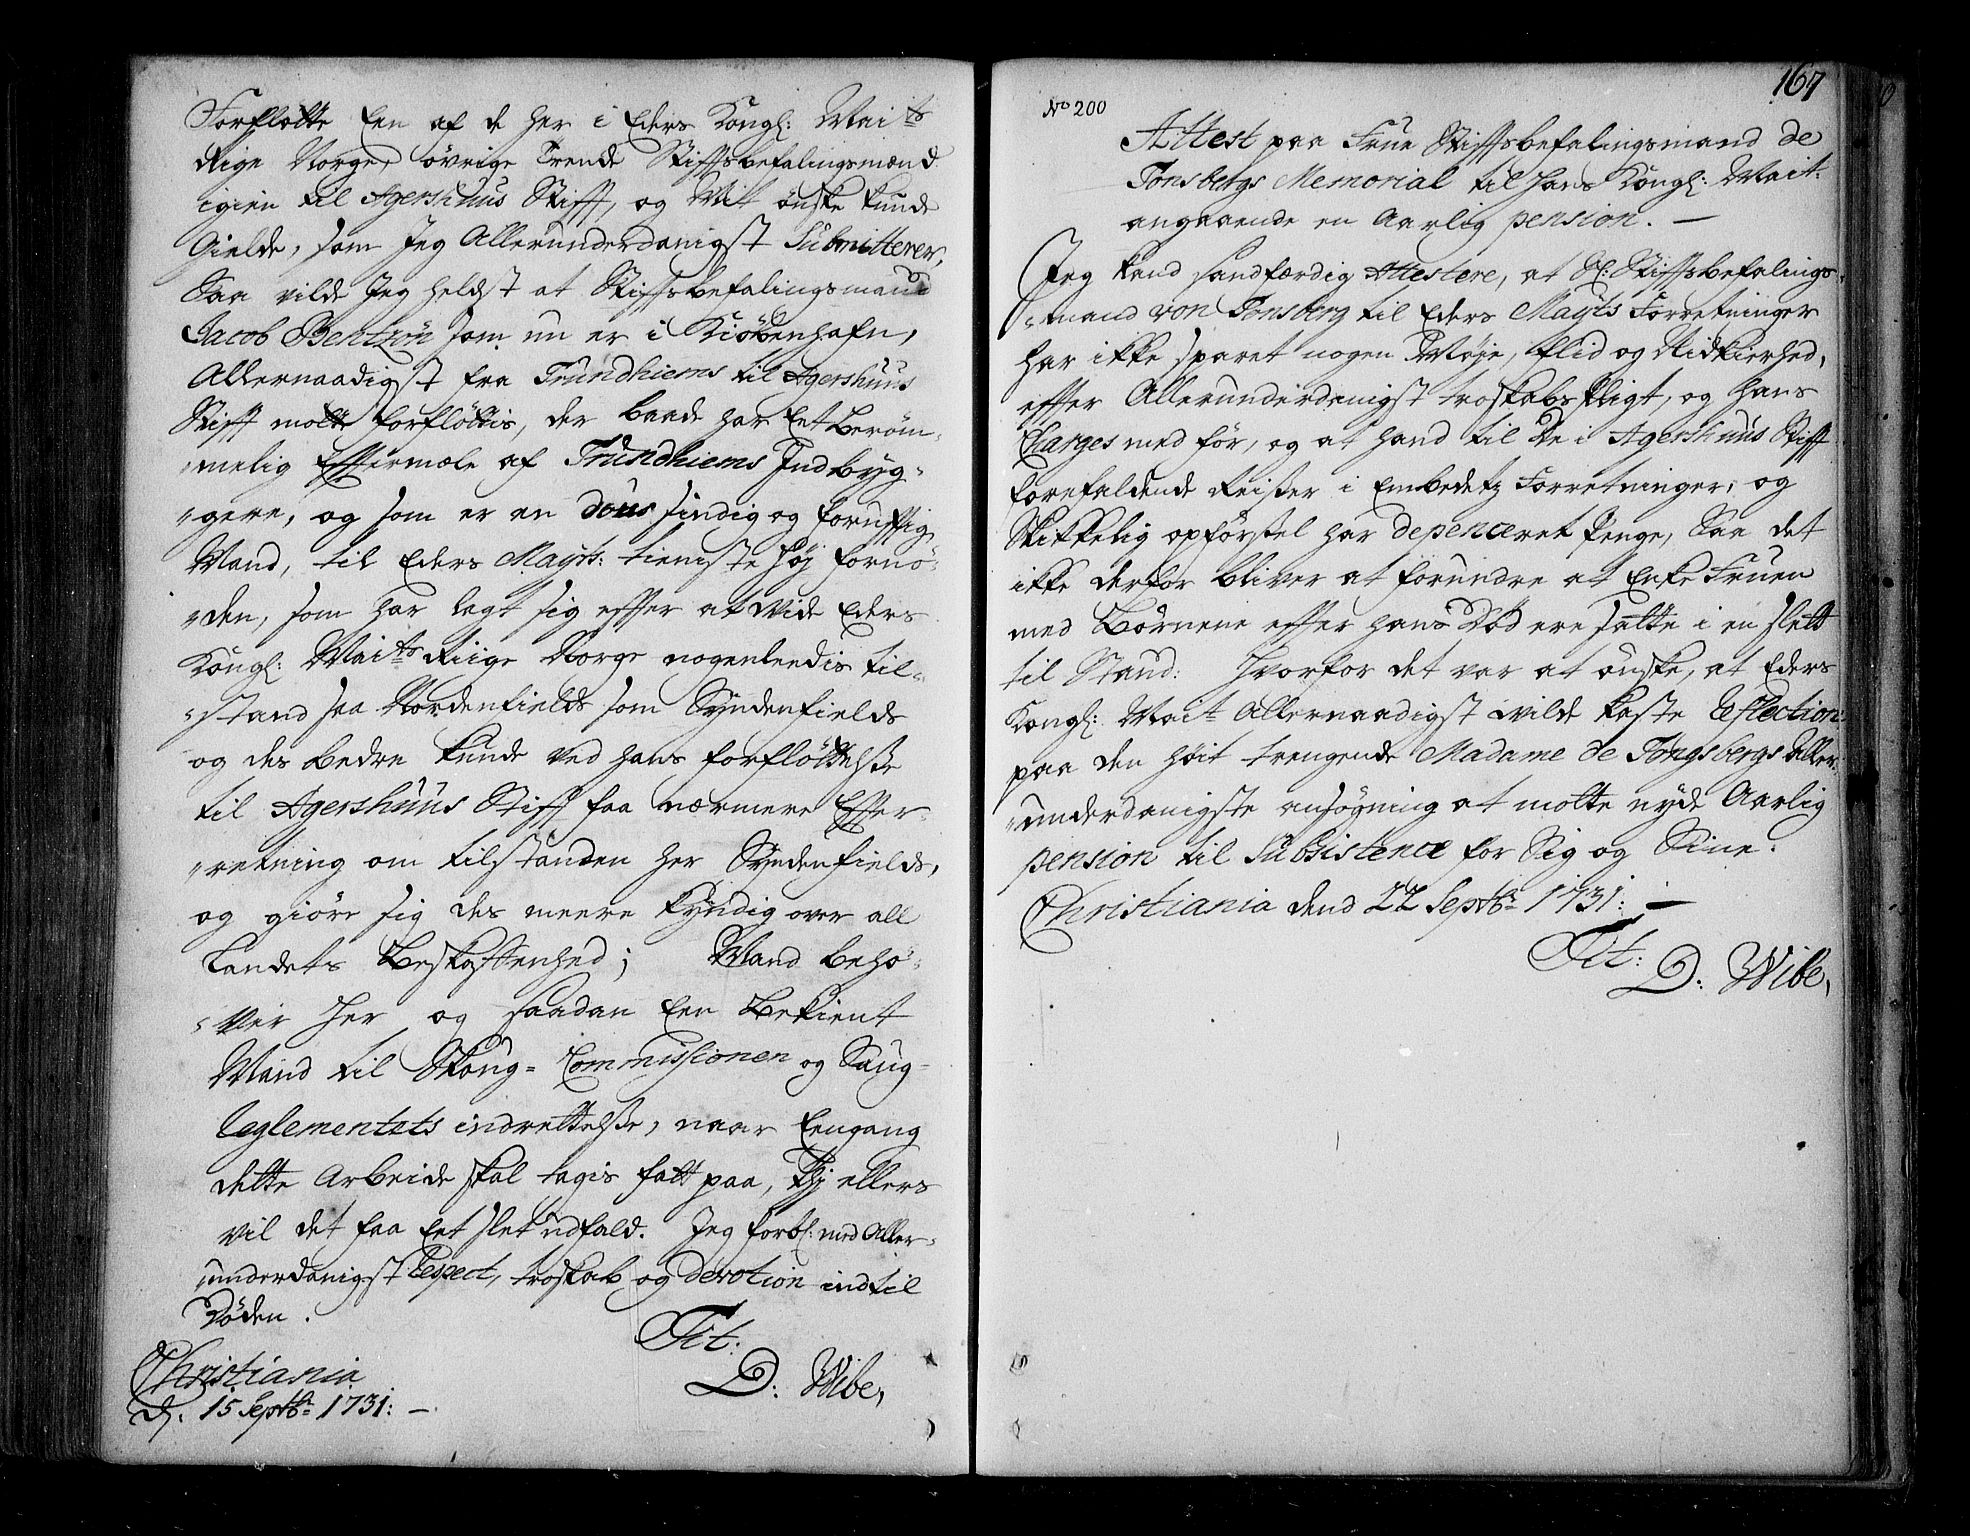 Forfløtte Een af de her i Eders Kongl: Maits
Rige Norge, øvrige Trende Stiftsbefalingsmænd
igien til Agershuus Stift, og Mit ønske kunde
Gielde, som Jeg Allerunderdanigst Submitterer,
Saa vilde Jeg heldst at Stiftsbefalingsmand
Jacob Bentzon som nu er i Kiøbenhafn,
Allernaadigst fra Trundhiems til Agershuus
Stift motte forfløttis, der baade har Eet Berøm-
"melig Eftermæle af Trundhiems Indbyg-
"gere, og som er en dous sindig og fornuftig
Mand, til Eders Mayts: tieniste høy fornø-
"den, som har lagt sig effter at vide Eders
Kongl: Maits Riige Norge nogenlendis til-
"stand saa Nordenfields som Syndenfields
og des bedre kunde ved hans forfløttelße
til Agershuus Stift faa nærmere Effter-
"retning om tilstanden her Syndenfields,
og giøre sig des meere kyndig over all
Landets Beskaffenhed; Mand behø-
"ver her og saadan Een Bekient
Mand til Skoug-Commissionen og Saug-
Reglementets indrettelße, naar Eengang
dette Arbeide skal tagis fatt paa, thj ellers
vil det faa Eet slet udfald. Jeg forbl: med Aller-
"underdanigst Respect, troskab og Devotion indtil
Døden.
Tit:
D: Wibe,
Christiania
d. 15 Septbr 1731: —
167
No 200
Attest paa Frue Stiftsbefalingsmand de
Tonsbergs Memorial til Hans Kongl: Mait:
angaaende en Aarlig pension. —
Jeg kand sandfærdig Attestere, at Sl: Stiftsbefalings-
"mand von Tonsberg til Eders Mayts Forretninger
har ikke sparet nogen Møje, flid og Nidkierhed,
effter Allerunderdanigst troskabs Pligt, og hans
Charges med før, og at hand til De i Agershuus Stift
forefaldende Reißer i Embedetz Forretninger, og
Skikkelig opførsel har depenceret Penge, Saa det
ikke derfor bliver at forundre at Enke Fruen
med Børnene effter hans Død ere satte i en slett
til Stand: Hvorfor det var at ønske, at Eders
Kongl: Mait Allernaadigst vilde kaste Reflection
paa den høit trengende Madame de Tongsbergs Aller-
"underdanigste ansøgning at motte nyde Aarlig
pension til Subsistence for Sig og Sine.
Christiania dend 22 Septbr 1731: —
Tit:
D: Wibe,